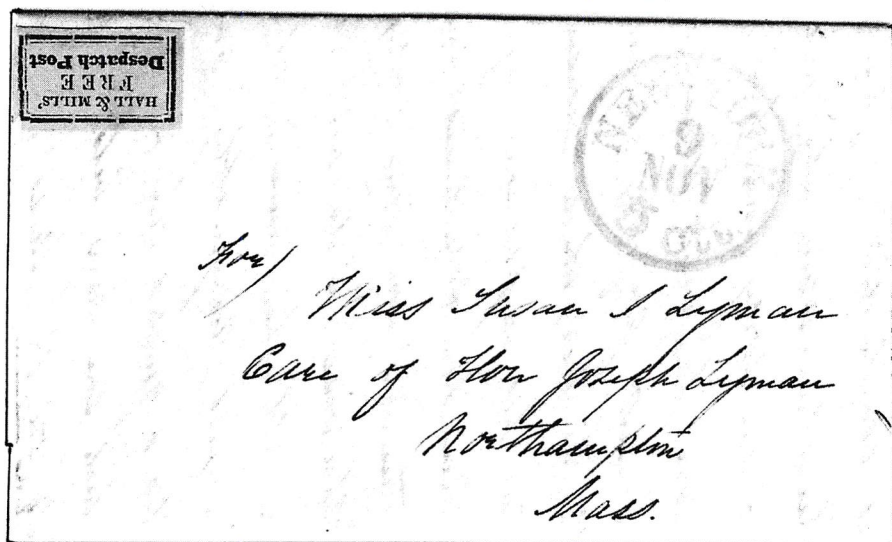 HALL & MILLS'
FREE
Despatch Post
NEW YORK
9
NOV
5 Cts.
For)
Miss Susan I Lyman
Care of Hon Joseph Lyman
Northampton
Mass.